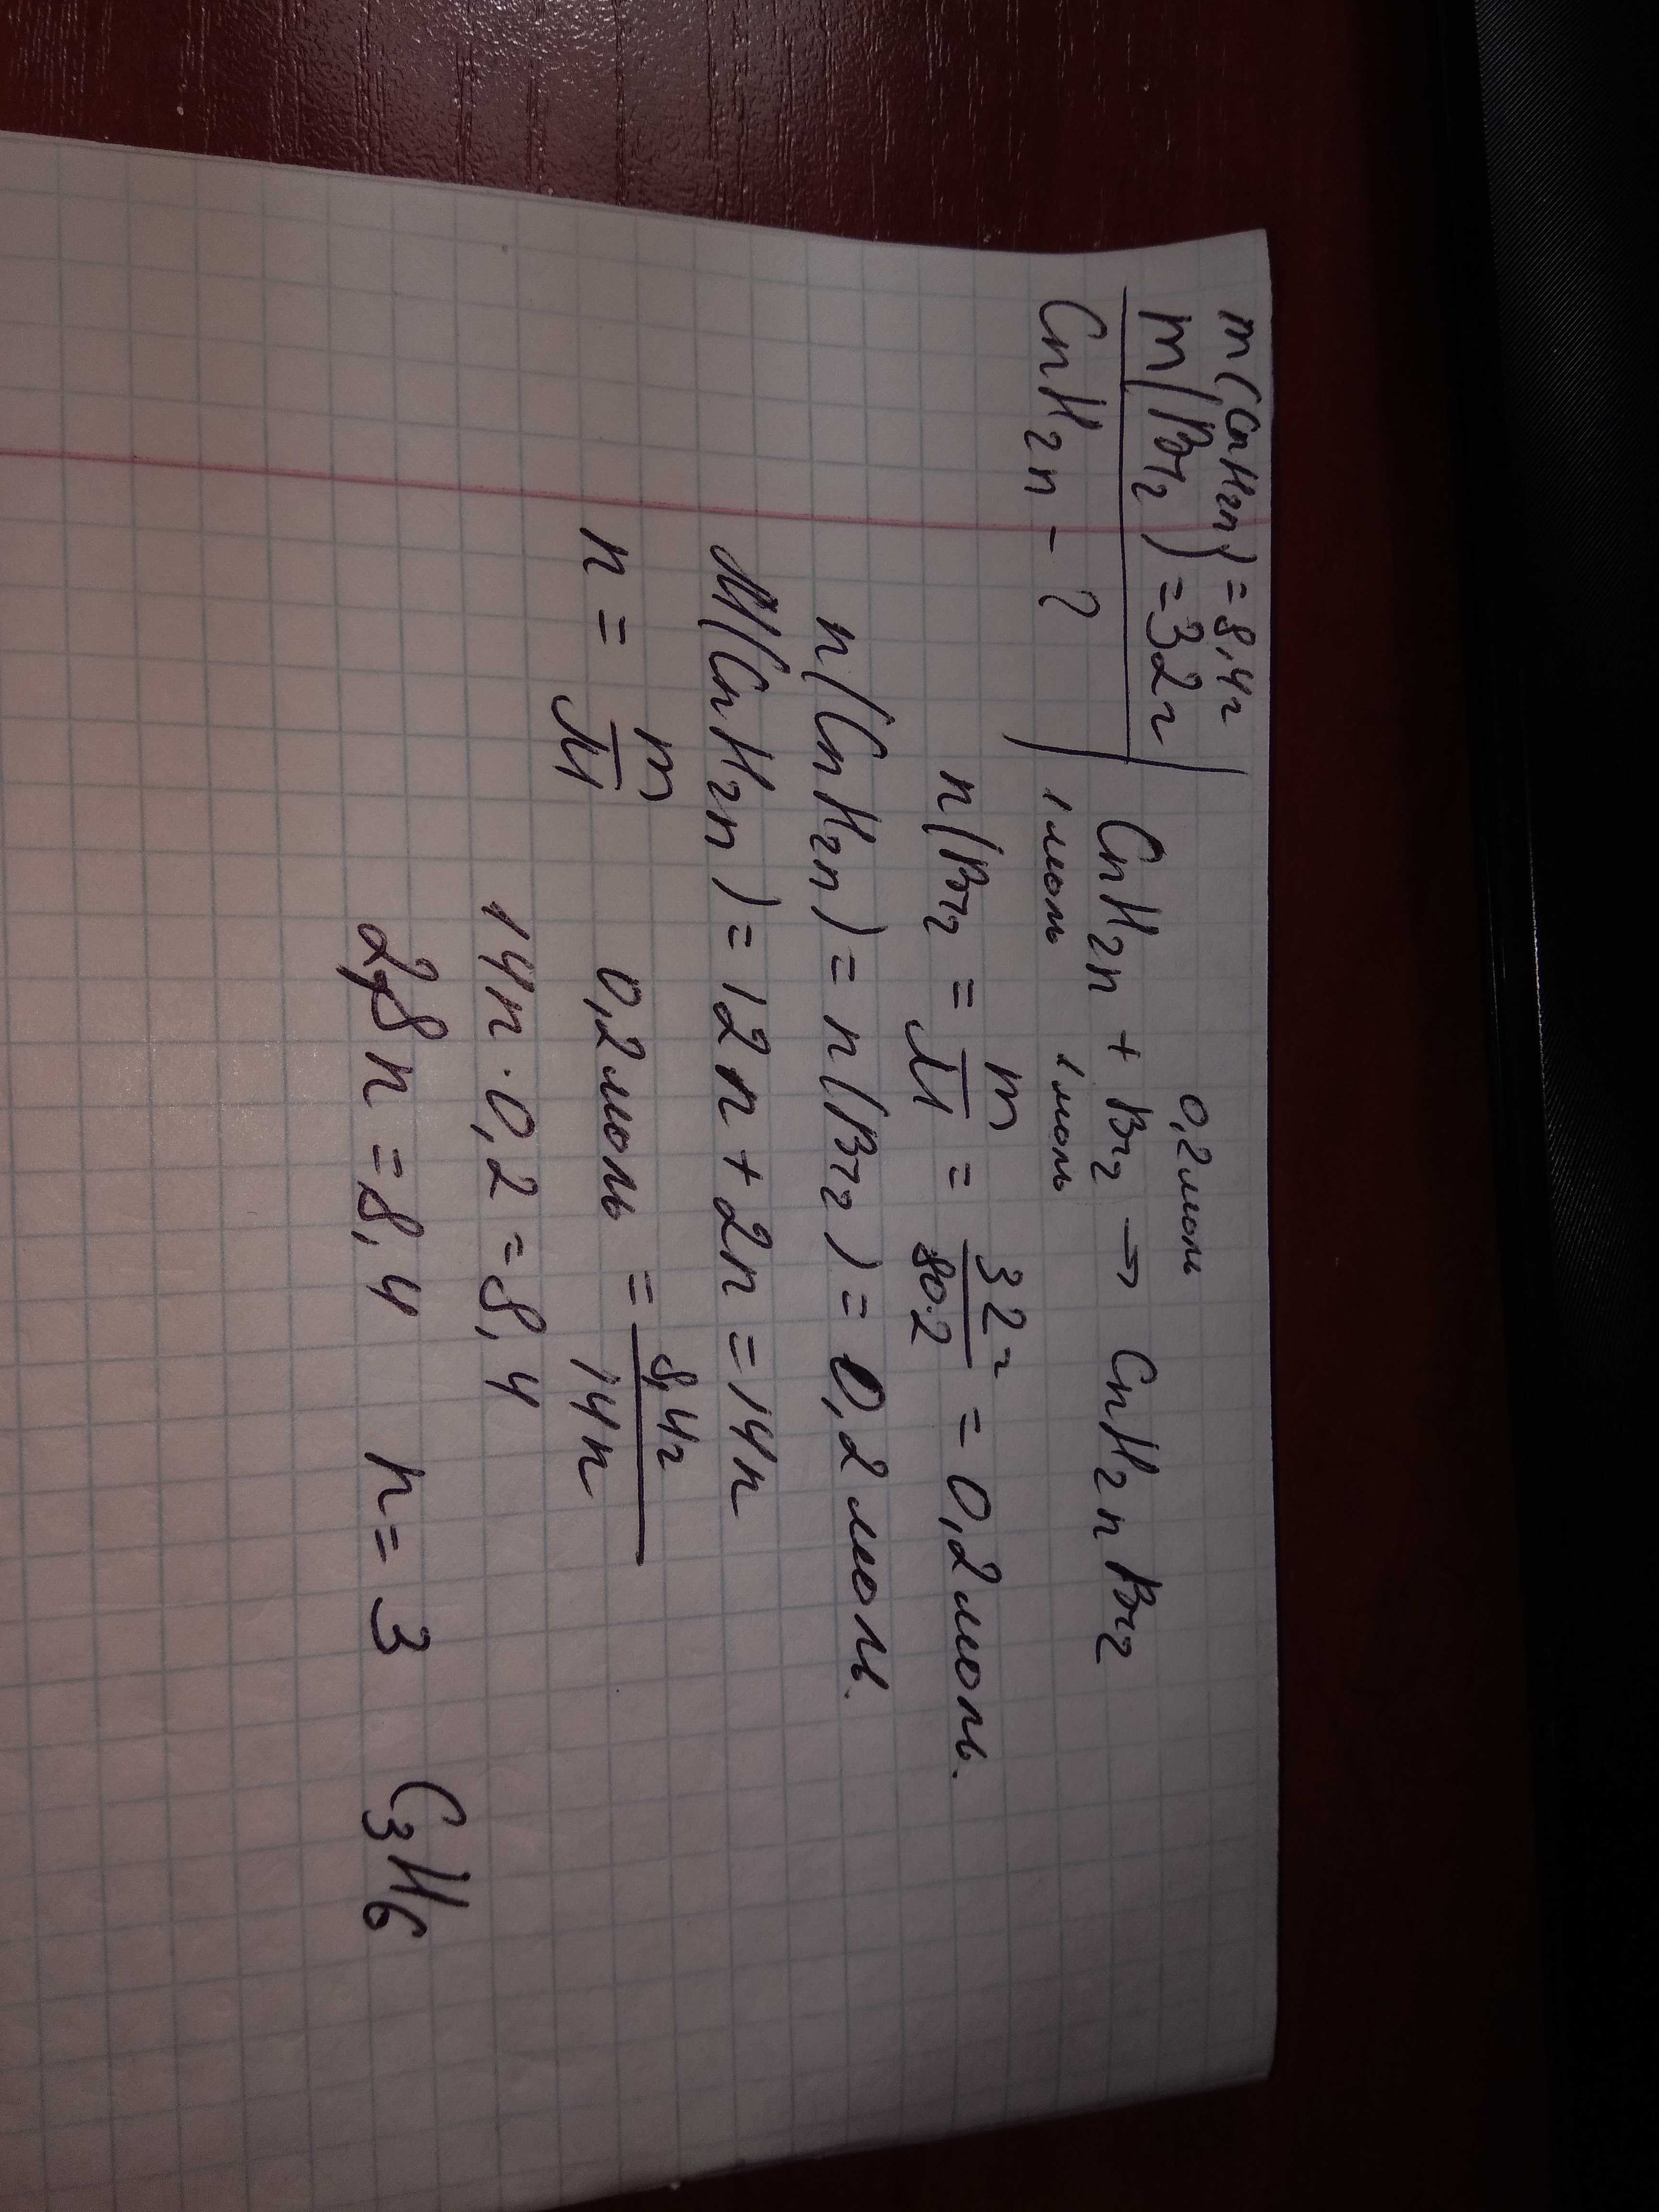 m(CnH2n) = 8,4г
m(Br2) = 32г
CnH2n - ?
0,2моль
CnH2n + Br2 → CnH2nBr2
1моль 1моль
n(Br2 = m/M = 32г/80·2 = 0,2моль.
n(CnH2n) = n(Br2) = 0,2моль.
M(CnH2n) = 12n + 2n = 14n
n = m/M 0,2моль = 8,4г/14n
14n · 0,2 = 8,4
2,8n = 8,4 n = 3 C3H6